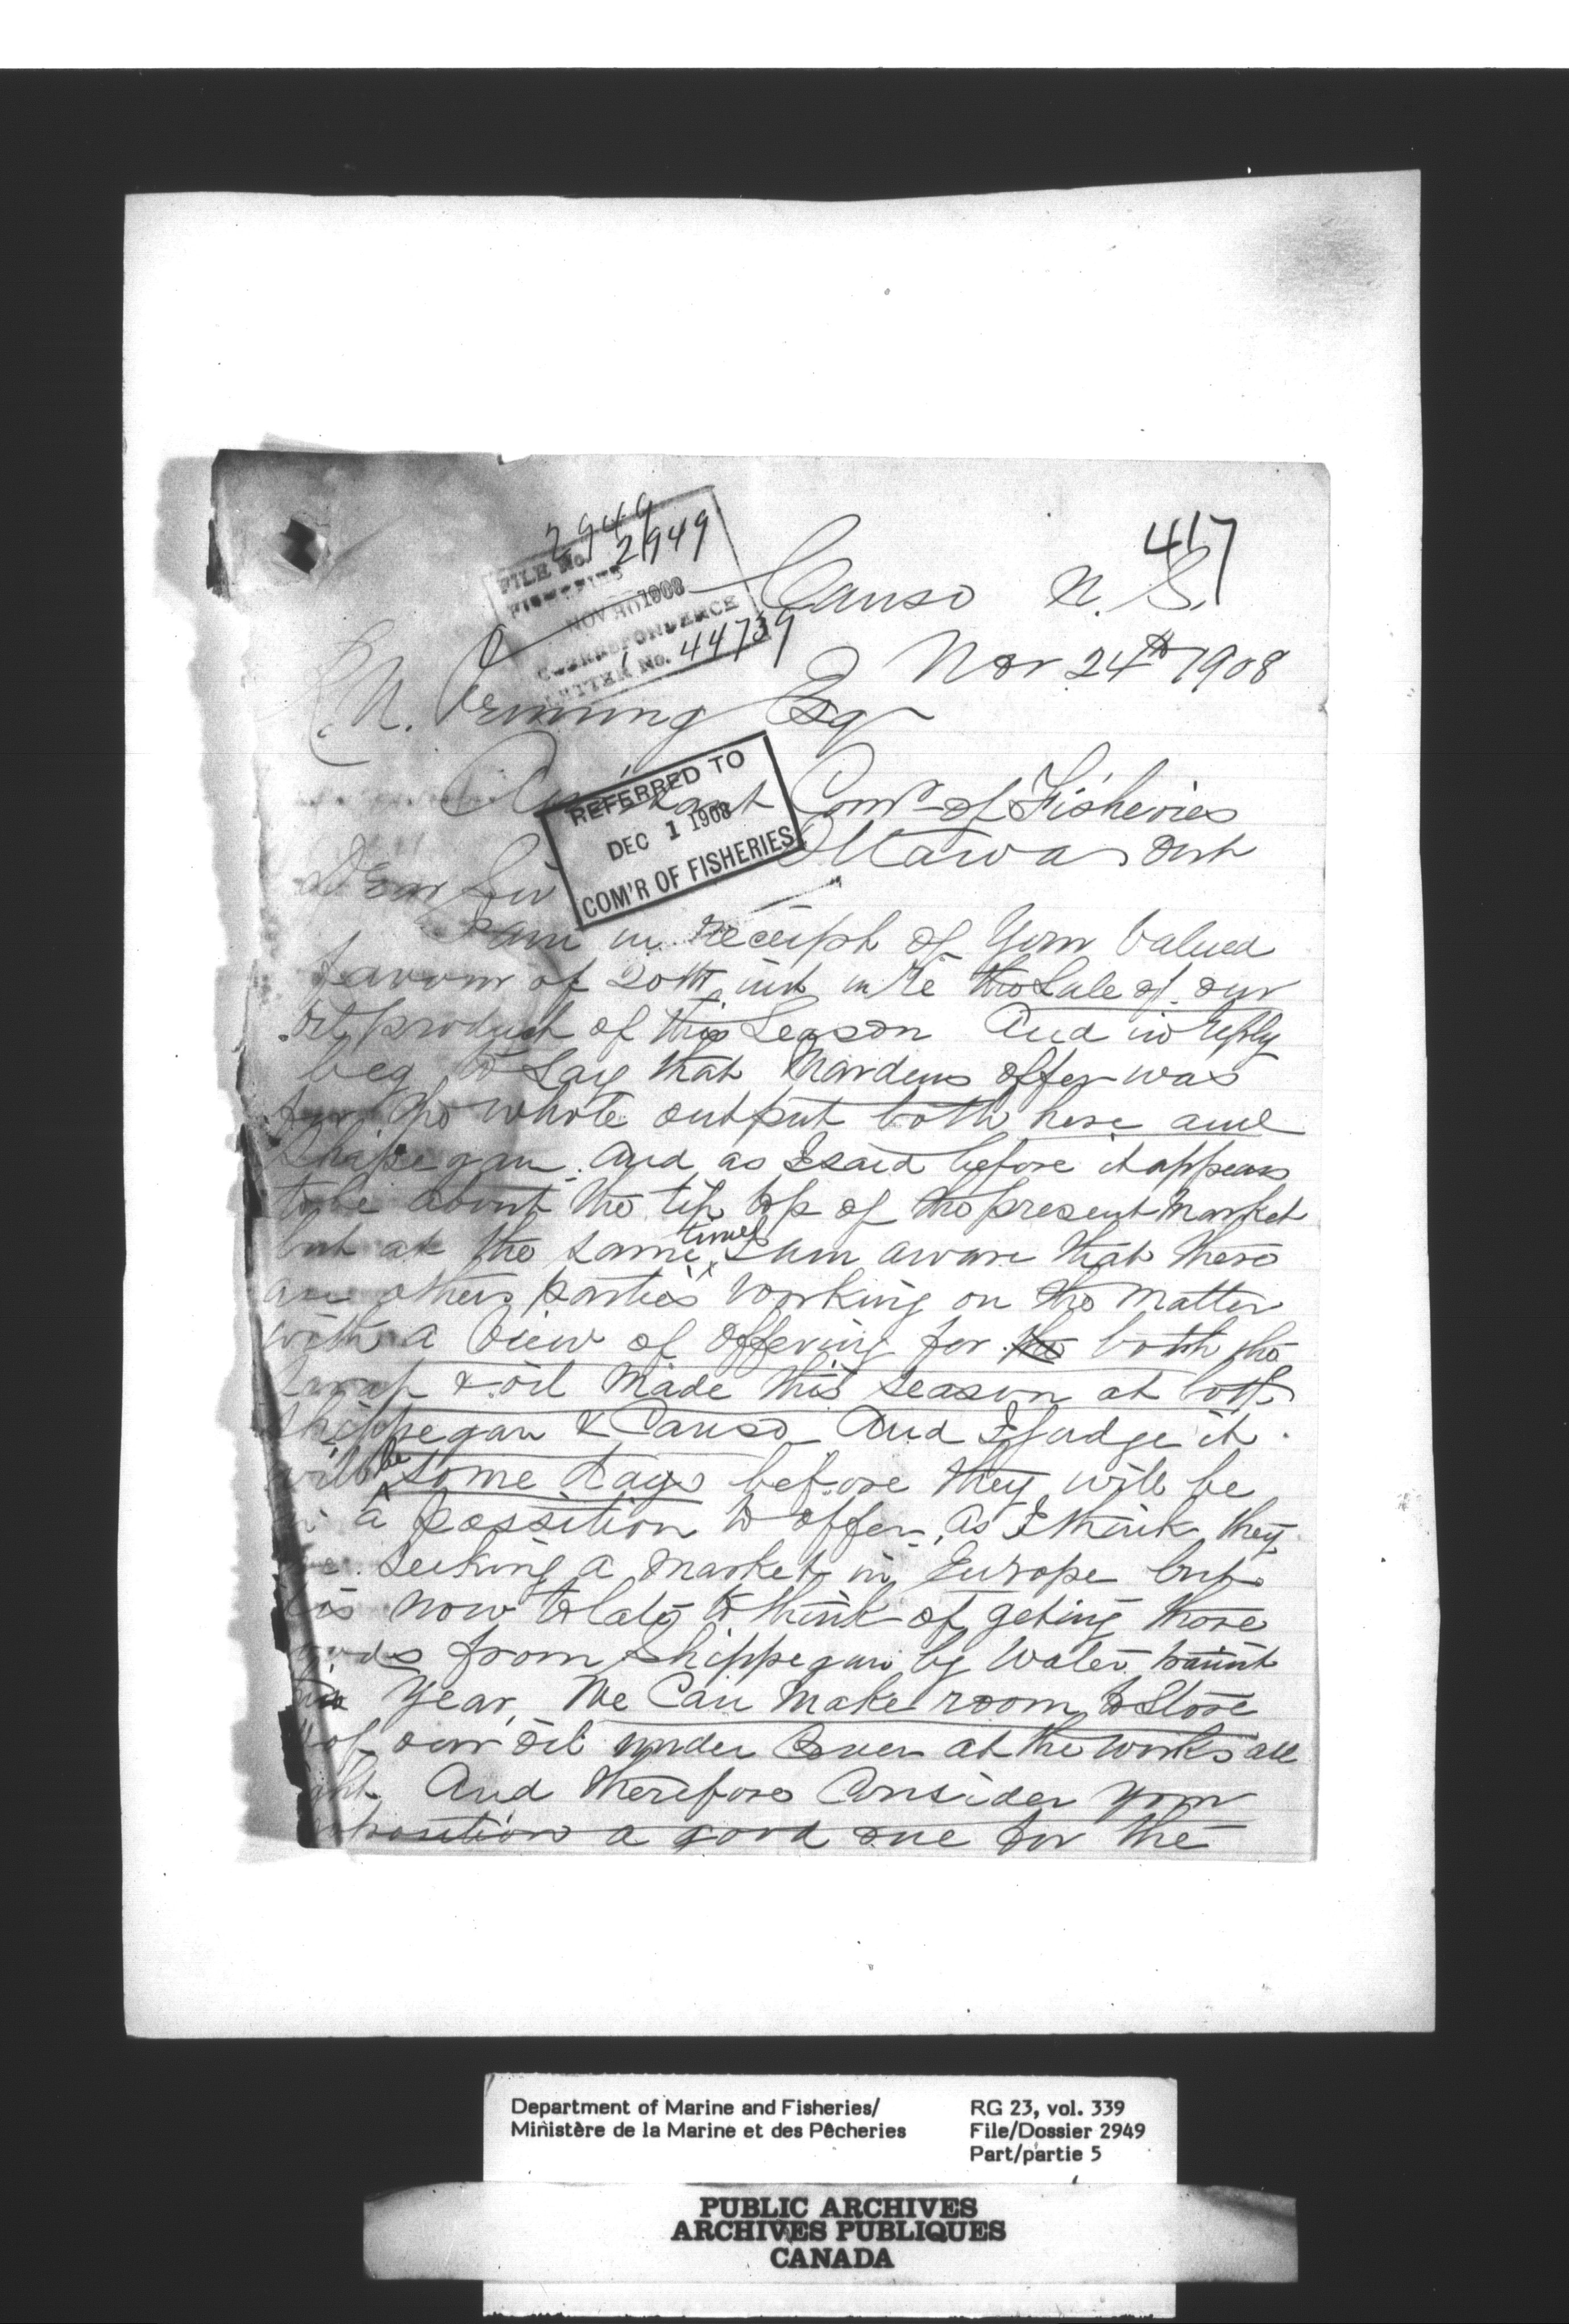 417
2949
FILE No. 2949
FISHERIES
NOV 30 1908
CORRESPONDENCE
LETTER No. 44739
Canso N.S.
Nov 24th 1908
R.N. Venning Esq
Assistant Comr of Fisheries
Ottawa Ont
REFERRED TO
DEC 1 1908
COM'R OF FISHERIES
Dear Sir
I am in receipt of your valued
favour of 20th inst in re the Sale of our
oil product of this Season And in reply
beg to Say that Mardens offer was
for the whole output both here and
Shipegan. And as I said before it appears
to be about the tip top of the present market
but at the same time I am aware that there
are other parties working on the matter
with a view of offering for the both the
scrap & oil made this season at both
Shippegan & Canso And I Judge it
will be some days before they will be
in a possition to offer, as I think they
are Seeking a market in Europe but
tis now to late to think of geting those
goods from Shippegan by water
this Year, We Can make room to Store
all of our oil under Cover at the works all
right And therefore Consider your
proposition a good one for the
Department of Marine and Fisheries/
Ministère de la Marine et des Pêcheries
RG 23, vol. 339
File/Dossier 2949
Part/partie 5
PUBLIC ARCHIVES
ARCHIVES PUBLIQUES
CANADA